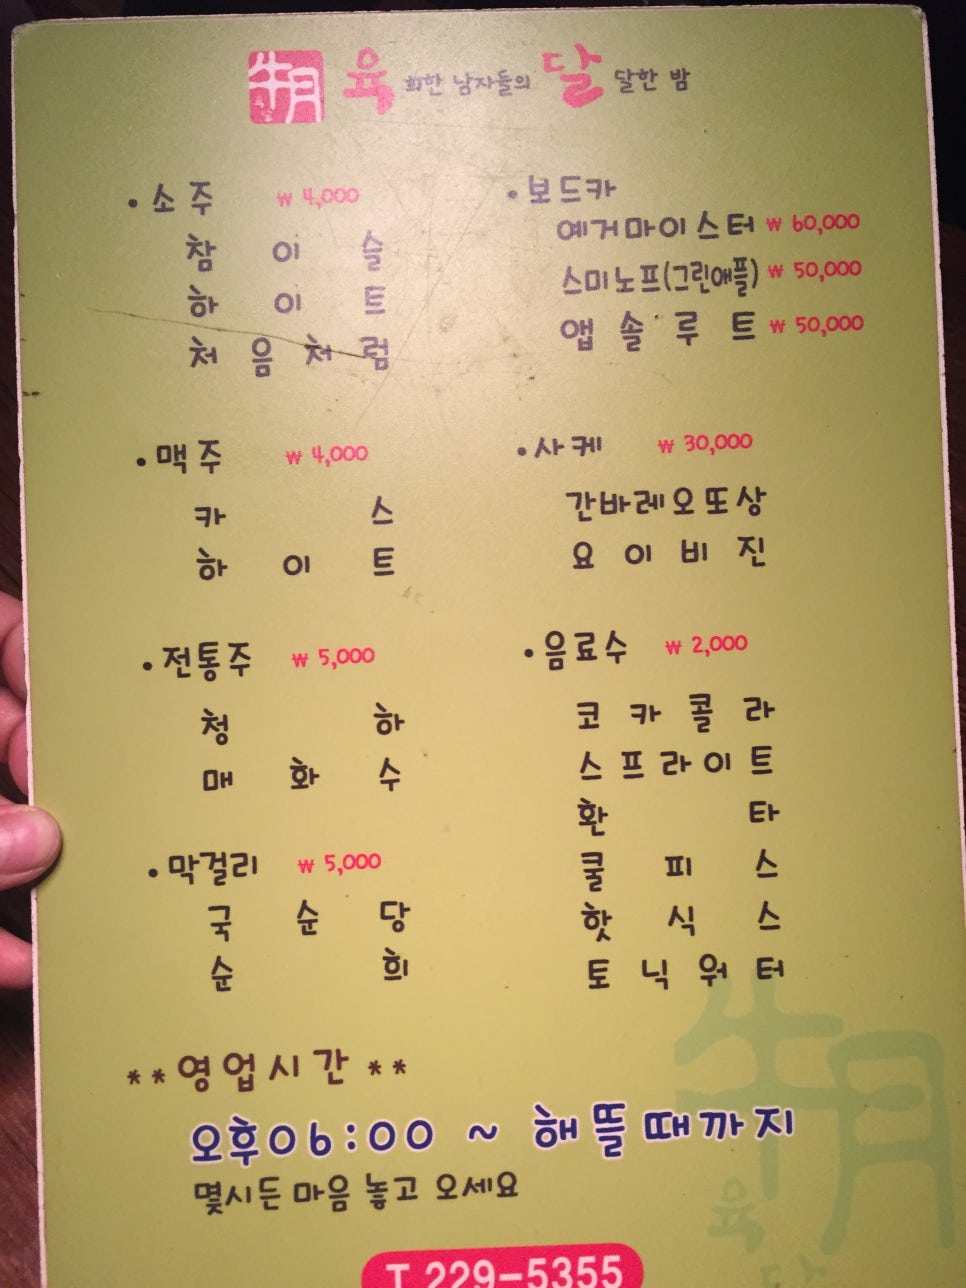 육회한 남자들의 달달한 밤
• 소주 ₩ 4,000
참이슬
하이트
처음처럼
• 맥주 ₩ 4,000
카스
하이트
• 전통주 ₩ 5,000
청하
매화수
• 막걸리 ₩ 5,000
국순당
순희
• 보드카
예거마이스터 ₩ 60,000
스미노프(그린애플) ₩ 50,000
앱솔루트 ₩ 50,000
• 사케 ₩ 30,000
간바레오또상
요이비진
• 음료수 ₩ 2,000
코카콜라
스프라이트
환타
쿨피스
핫식스
토닉워터
**영업시간**
오후06:00 ~ 해뜰때까지
몇시든 마음 놓고 오세요
육
달
T.229-5355